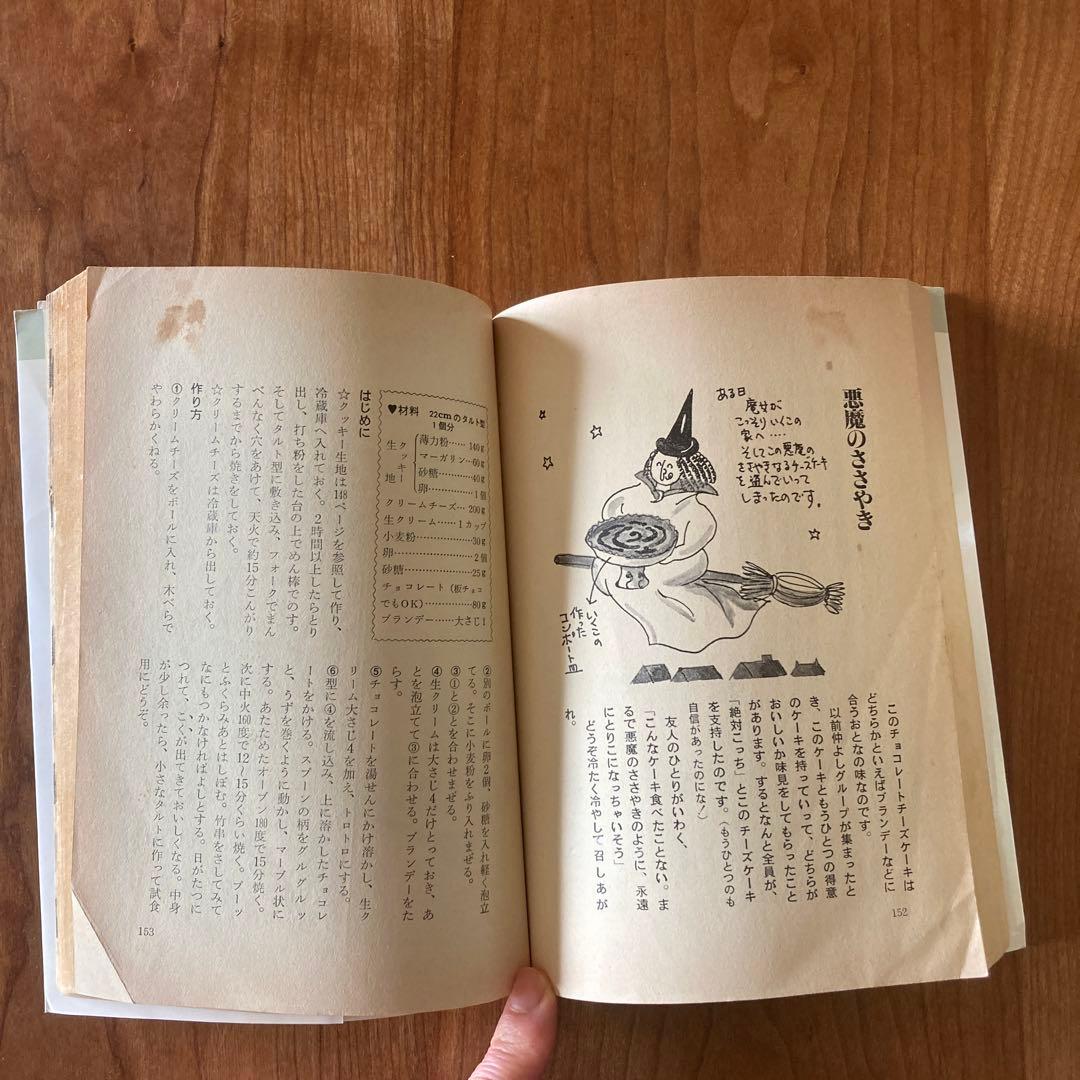 悪魔のささやき
ある日
魔女が
こっそりいくこの
家へ‥‥
そしてこの悪魔の
ささやきなるチーズケーキ
を盗んでいって
しまったのです。
いくこの
作った
コンポート皿
このチョコレートチーズケーキは
どちらかといえばブランデーなどに
合うおとなの味なのです。
以前仲よしグループが集まったと
き、このケーキともうひとつの得意
のケーキを持っていって、どちらが
おいしいか味見をしてもらったこと
があります。するとなんと全員が、
「絶対こっち」とこのチーズケーキ
を支持したのです。（もうひとつのも
自信があったのにな！）
友人のひとりがいわく、
「こんなケーキ食べたことない。ま
るで悪魔のささやきのように、永遠
にとりこになっちゃいそう」
どうぞ冷たく冷やして召しあが
れ。
152
♥材料 22cmのタルト型
1個分
クッキー生地
薄力粉……140g
マーガリン…60g
砂糖………40g
卵…………1個
クリームチーズ…200g
生クリーム……1カップ
小麦粉…………30g
卵………………2個
砂糖……………25g
チョコレート（板チョコ
でもOK）………80g
ブランデー……大さじ1
はじめに
☆クッキー生地は148ページを参照して作り、
冷蔵庫へ入れておく。2時間以上したらとり
出し、打ち粉をした台の上でめん棒でのす。
そしてタルト型に敷き込み、フォークでまん
べんなく穴をあけて、天火で約15分こんがり
するまでから焼きをしておく。
☆クリームチーズは冷蔵庫から出しておく。
作り方
①クリームチーズをボールに入れ、木べらで
やわらかくねる。
②別のボールに卵2個、砂糖を入れ軽く泡立
てる。そこに小麦粉をふり入れまぜる。
③①と②とを合わせまぜる。
④生クリームは大さじ4だけとっておき、あ
とを泡立てて③に合わせる。ブランデーをた
らす。
⑤チョコレートを湯せんにかけ溶かし、生ク
リーム大さじ4を加え、トロトロにする。
⑥型に④を流し込み、上に溶かしたチョコレ
ートをかける。スプーンの柄をグルグルッ
と、うずを巻くように動かし、マーブル状に
する。あたためたオーブン180度で15分焼く。
次に中火160度で12〜15分くらい焼く。プーッ
とふくらみあとはしぼむ。竹串をさしてみて
なにもつかなければよしとする。日がたつに
つれて、こくが出てきておいしくなる。中身
が少し余ったら、小さなタルトに作って試食
用にどうぞ。
153